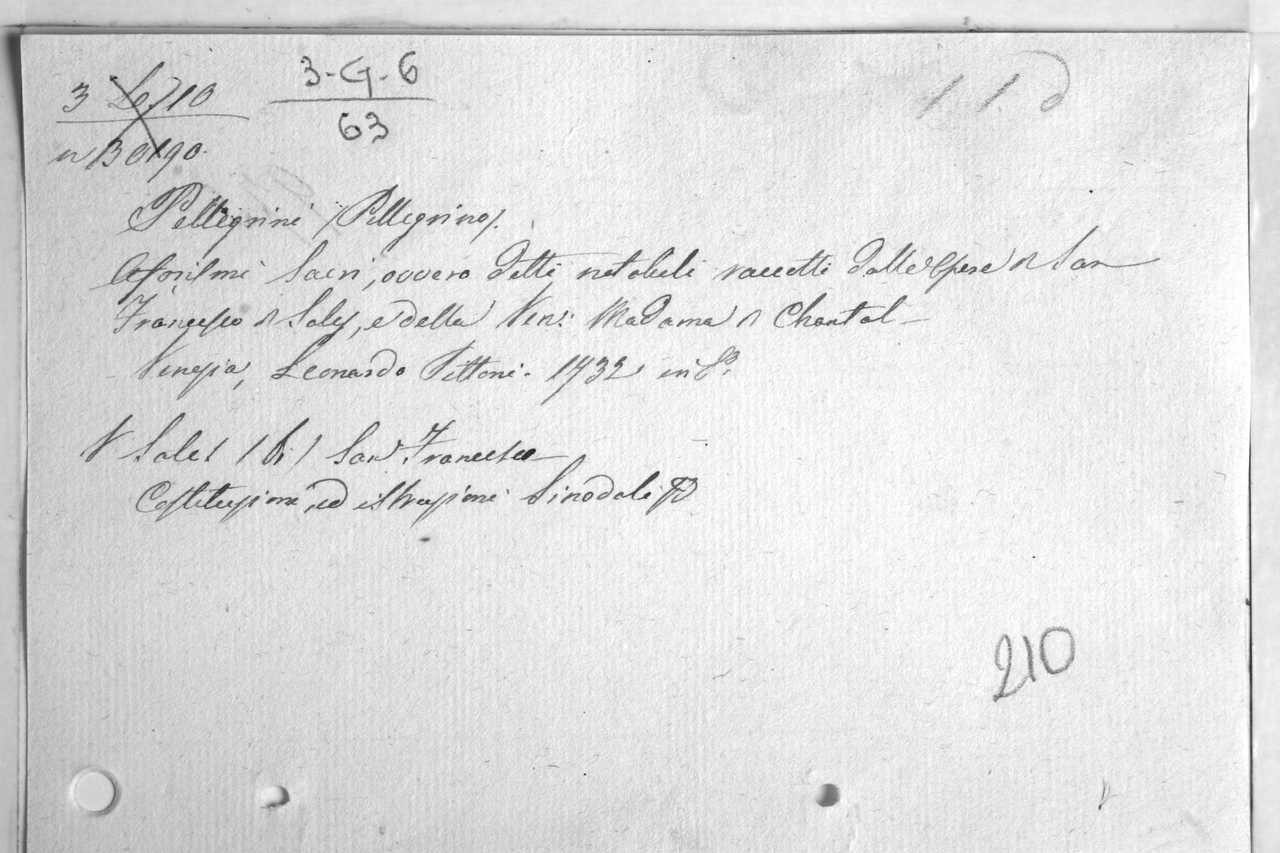 3 Lo 710
n 130190.
3-G-6
63
Pellegrini /Pellegrino/.
Aforismi Sacri, ovvero detti notabili raccolti dalle Opere di San
Francesco di Sales, e della Ven: Madama di Chantal
Venezia, Leonardo Pittoni. 1732 in 8º.
V Sales / di / San Francesco
Costituzioni, ed istruzioni Sinodali
210